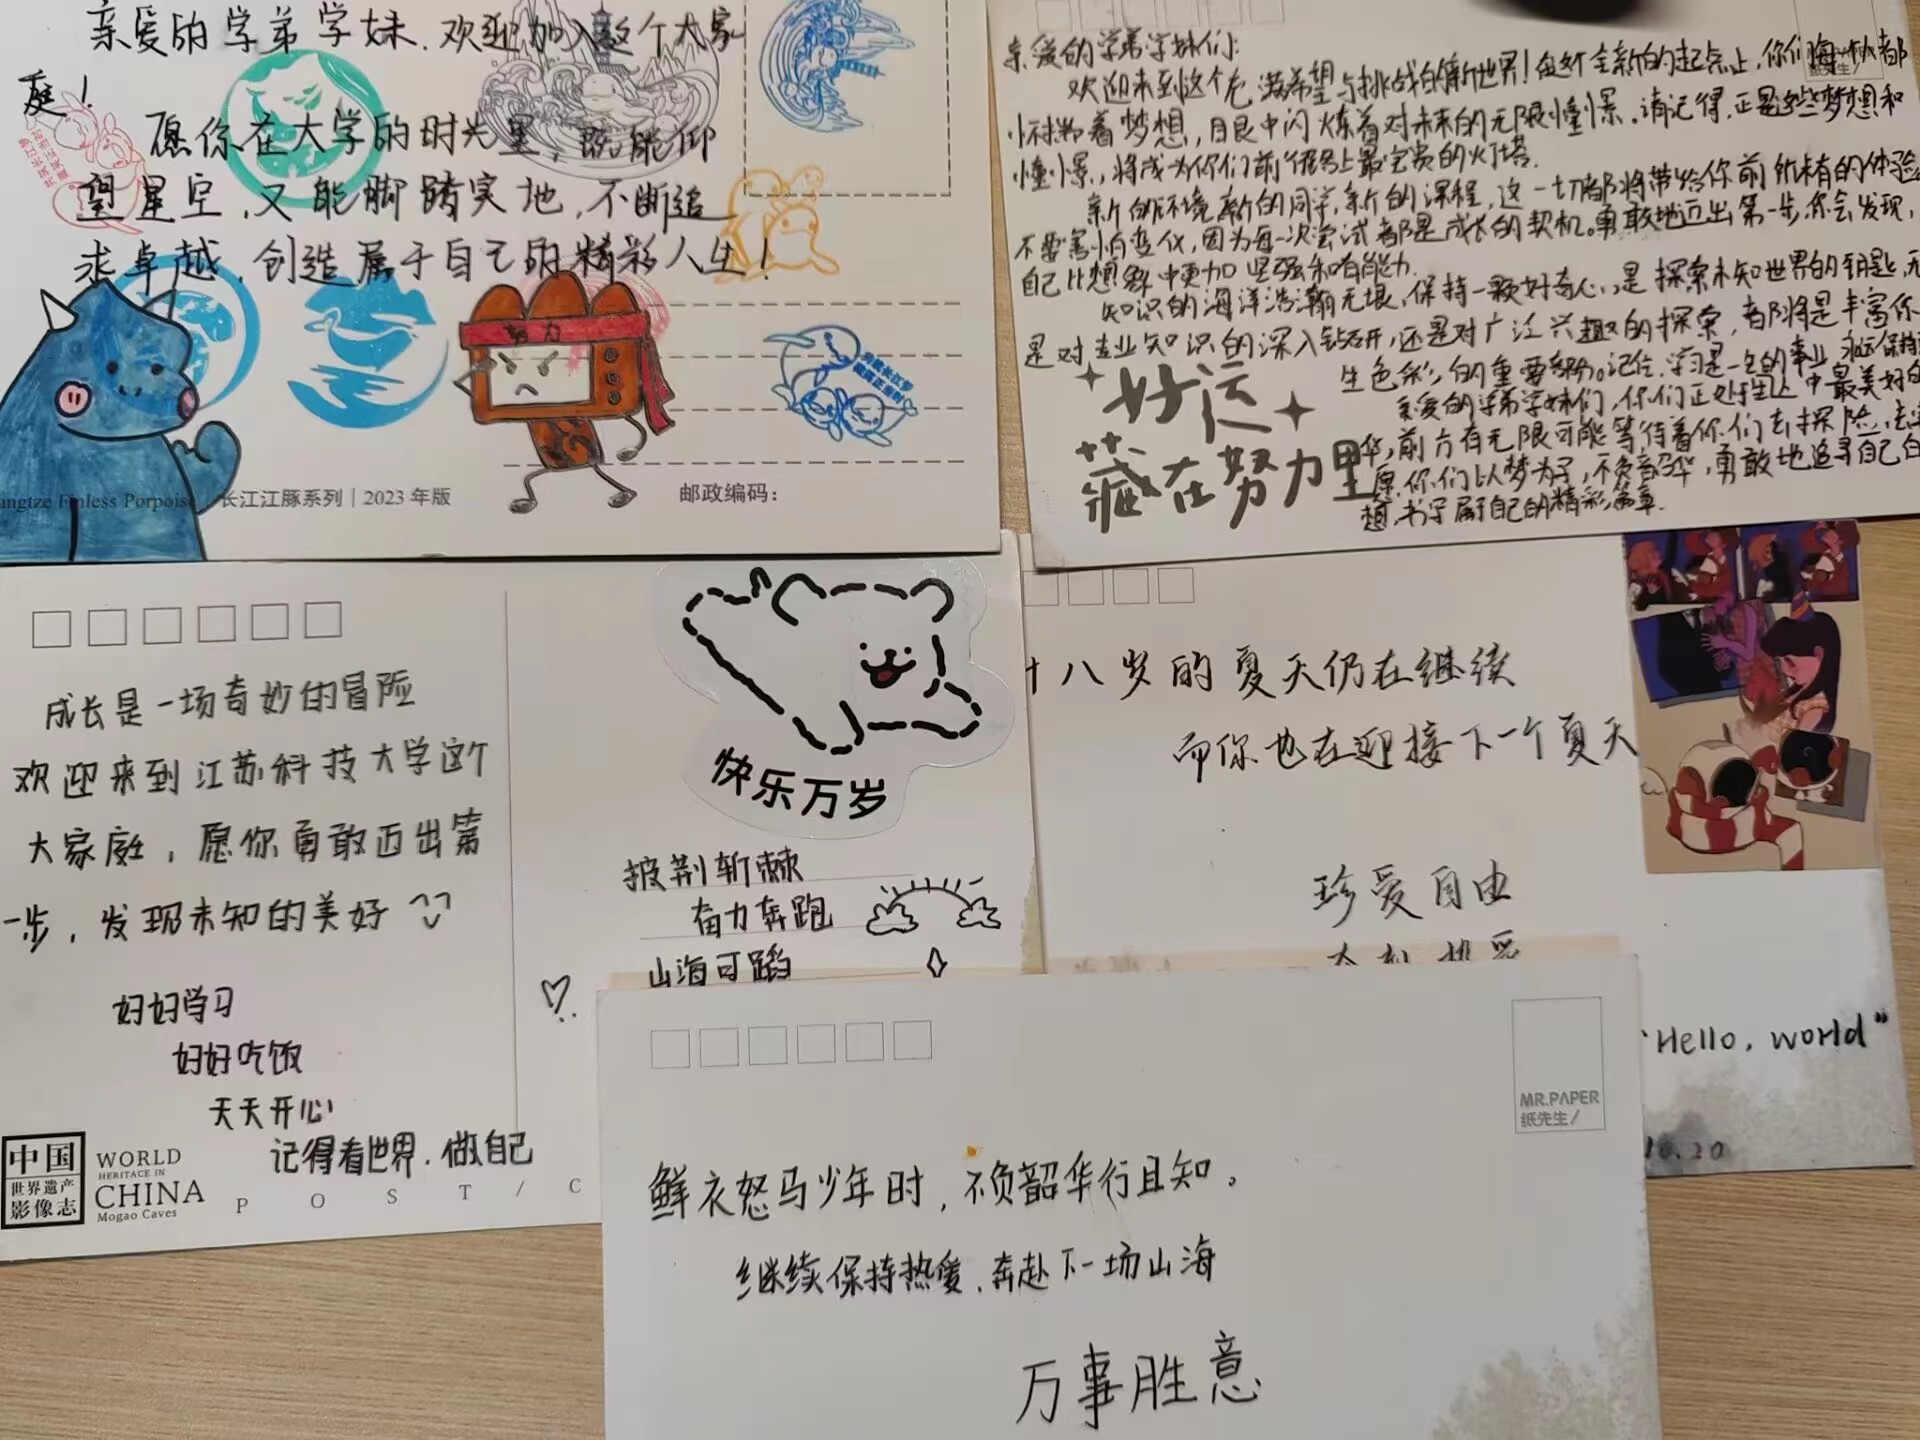 亲爱的学弟学妹，欢迎加入这个大家
庭！
愿你在大学的时光里，既能仰
望星空，又能脚踏实地，不断追
求卓越，创造属于自己的精彩人生！
努力
Finless Porpoise
长江江豚系列｜2023年版
邮政编码：
亲爱的学弟学妹们：
欢迎来到这个充满希望与挑战的新世界！在这个全新的起点上，你们每一个都
怀揣着梦想，眼中闪烁着对未来的无限憧憬。请记得，正是这些梦想和
憧憬，将成为你们前行路上最宝贵的灯塔。
新的环境，新的同学，新的课程，这一切都将带给你前所未有的体验
不要害怕变化，因为每一次尝试都是成长的契机。勇敢地迈出第一步，你会发现，
自己比想象中更加坚强和有能力。
知识的海洋浩瀚无垠，保持一颗好奇心，是探索未知世界的钥匙，无
是对专业知识的深入钻研，还是对广泛兴趣的探索，都将是丰富你
生色彩的重要部分。记住，学习是一生的事业，永远保持
亲爱的学弟学妹们，你们正处于人生中最美好的
华，前方有无限可能等待着你们去探险，去
愿你们以梦为马，不负韶华，勇敢地追寻自己的
想，书写属于自己的精彩篇章。
好运
藏在努力里
成长是一场奇妙的冒险
欢迎来到江苏科技大学这个
大家庭，愿你勇敢迈出第
一步，发现未知的美好
好好学习
好好吃饭
天天开心
记得看世界，做自己
中国
世界遗产
影像志
WORLD
HERITAGE IN
CHINA
Mogao Caves
POST/C
快乐万岁
披荆斩棘
奋力奔跑
山海可蹈
十八岁的夏天仍在继续
而你也在迎接下一个夏天
珍爱自由
"Hello, world"
10.20
MR.PAPER
纸先生/
鲜衣怒马少年时，不负韶华行且知。
继续保持热爱，奔赴下一场山海
万事胜意